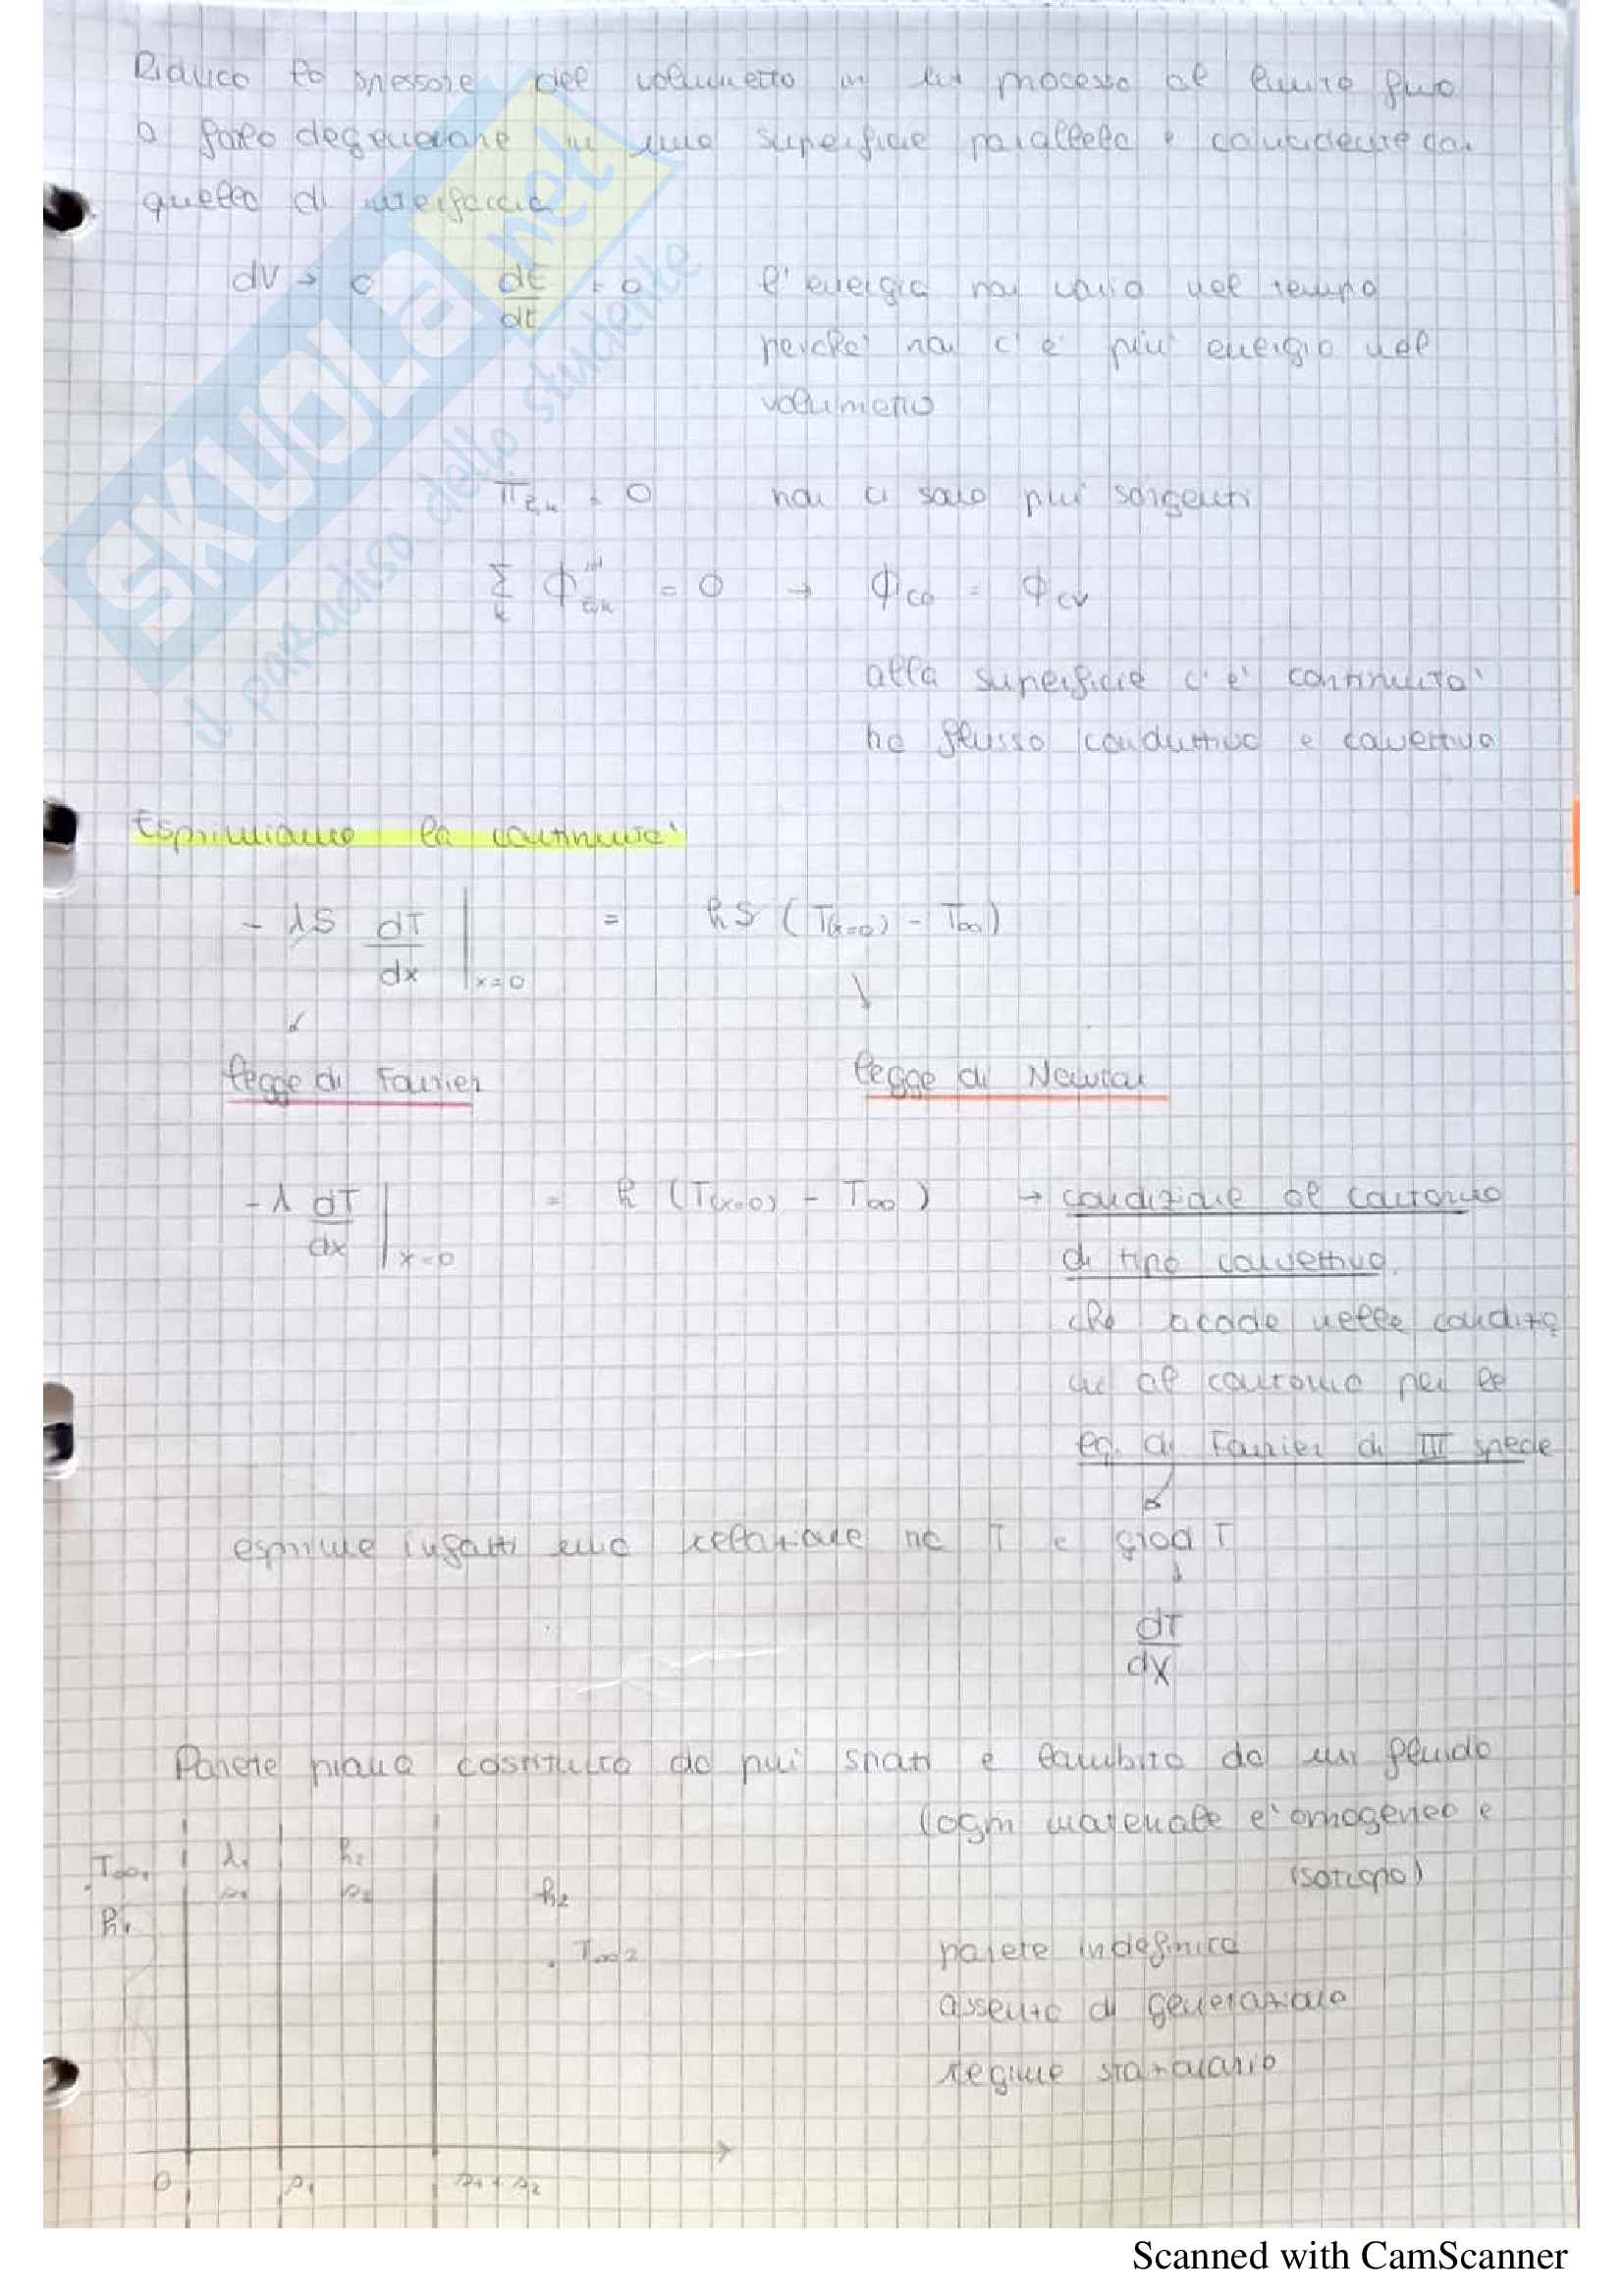 Riduco lo spessore del volumetto in un processo al limite fino
a farlo degenerare in una superficie parallela e coincidente con
quella di interfaccia
dV → 0 dE/dt = 0 l'energia non varia nel tempo
perche' non c'e' piu' energia nel
volumetto
non ci sono piu' sorgenti
alla superficie c'e' continuita'
tra flusso conduttivo e convettivo
Esprimiamo la continuita'
- λS dT/dx |x=0 = hS (T(x=0) - T∞)
legge di Fourier legge di Newton
- λ dT/dx |x=0 = h (T(x=0) - T∞) → condizione al contorno
di tipo convettivo.
che accade nelle condizio
ni al contorno per le
eq. di Fourier di III specie
esprime infatti una relazione tra T e grad T
dT/dx
Parete piana costituita da piu' strati e lambita da un fluido
(ogni materiale e' omogeneo e
isotropo)
T∞1 λ1 h2
s1 s2 h2
h1
. T∞2 parete indefinita
assenza di generazione
regime stazionario
0 s1 s1 + s2
SKUOLA.net
il paradiso dello studente
Scanned with CamScanner